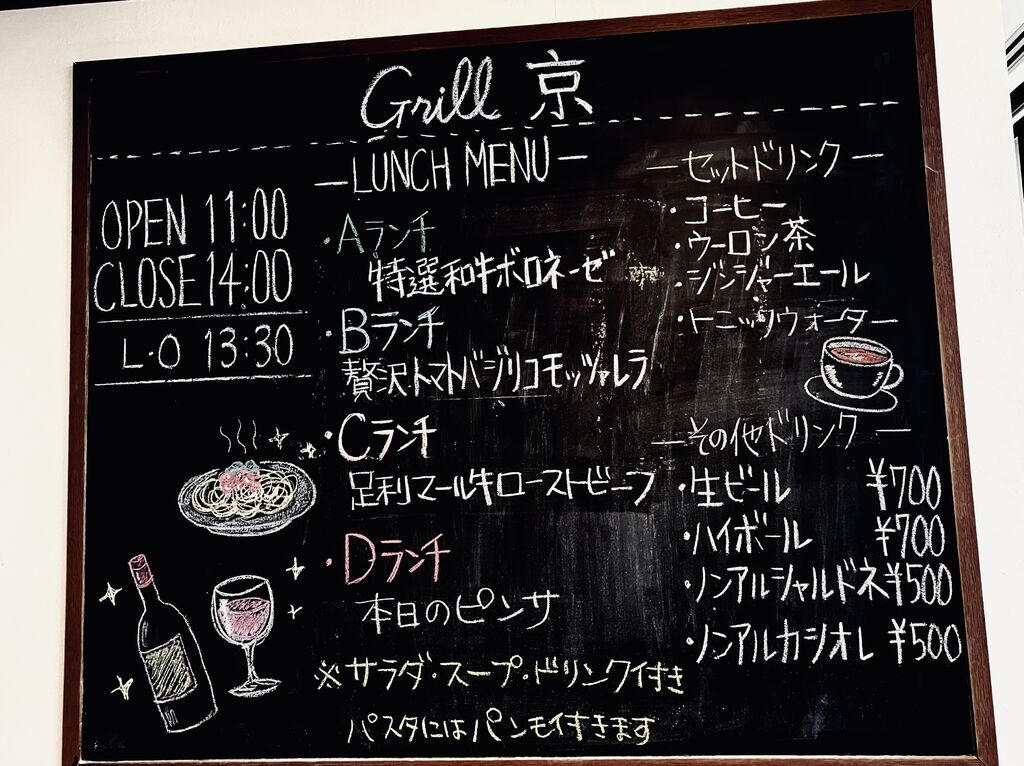 Grill 京
OPEN 11:00
CLOSE 14:00
L・O 13:30
—LUNCH MENU—
・Aランチ
特選和牛ボロネーゼ
・Bランチ
贅沢トマトバジリコモッツァレラ
・Cランチ
足利マール牛ローストビーフ
・Dランチ
本日のピンサ
※サラダ・スープ・ドリンク付き
パスタにはパンも付きます
—セットドリンク—
・コーヒー
・ウーロン茶
・ジンジャーエール
・トニックウォーター
—その他ドリンク—
・生ビール ¥700
・ハイボール ¥700
・ノンアルシャルドネ ¥500
・ノンアルカシオレ ¥500